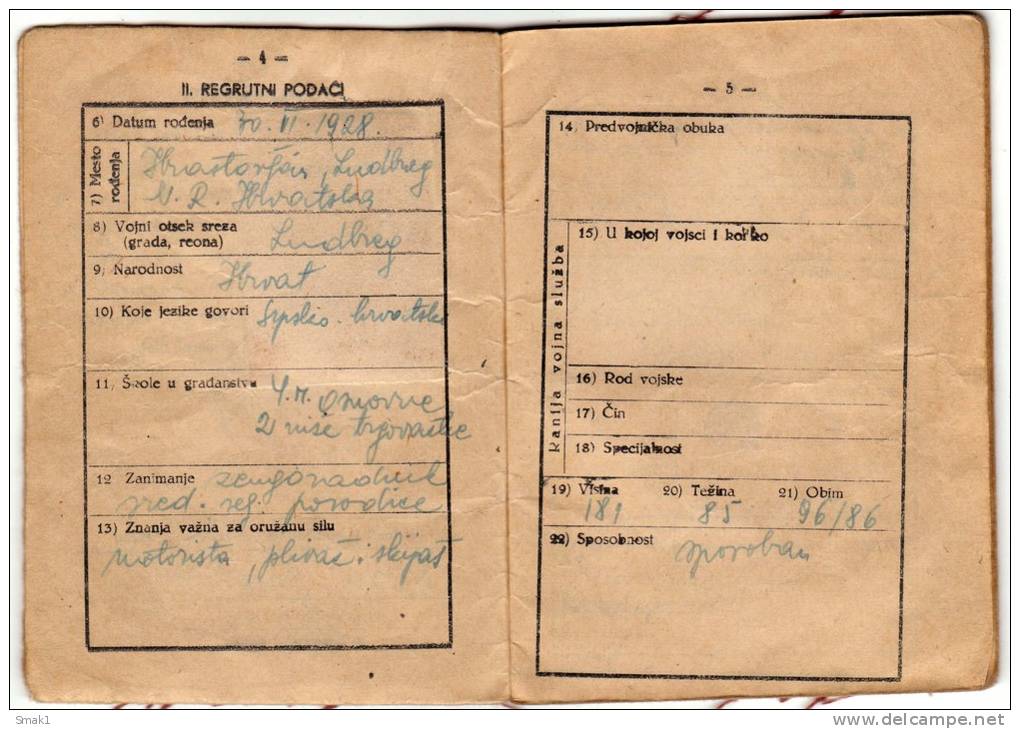 — 4 —
II. REGRUTNI PODACI
6) Datum rođenja 30. VI. 1928.
7) Mesto rođenja Ludbreg
N. R. Hrvatska
8) Vojni otsek sreza
(grada, reona) Ludbreg
9) Narodnost Hrvat
10) Koje jezike govori Srpsko-hrvatski
11) Škole u građanstvu 4 r. osnovne
2 niže trgovačke
12 Zanimanje
sred. selj. porodice
13) Znanja važna za oružanu silu
motorista, plivač i skijaš
— 5 —
14) Predvojnička obuka
Ranija vojna služba
15) U kojoj vojsci i koliko
16) Rod vojske
17) Čin
18) Specijalnost
19) Visina 20) Težina 21) Obim
181 85 96/86
22) Sposobnost sposoban
Smak1
www.delcampe.net